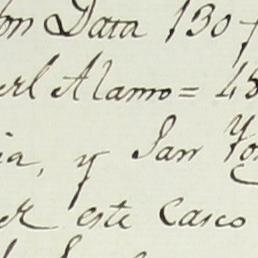 on Data 130
el Alamo = 48
ia, y San
er este Casco